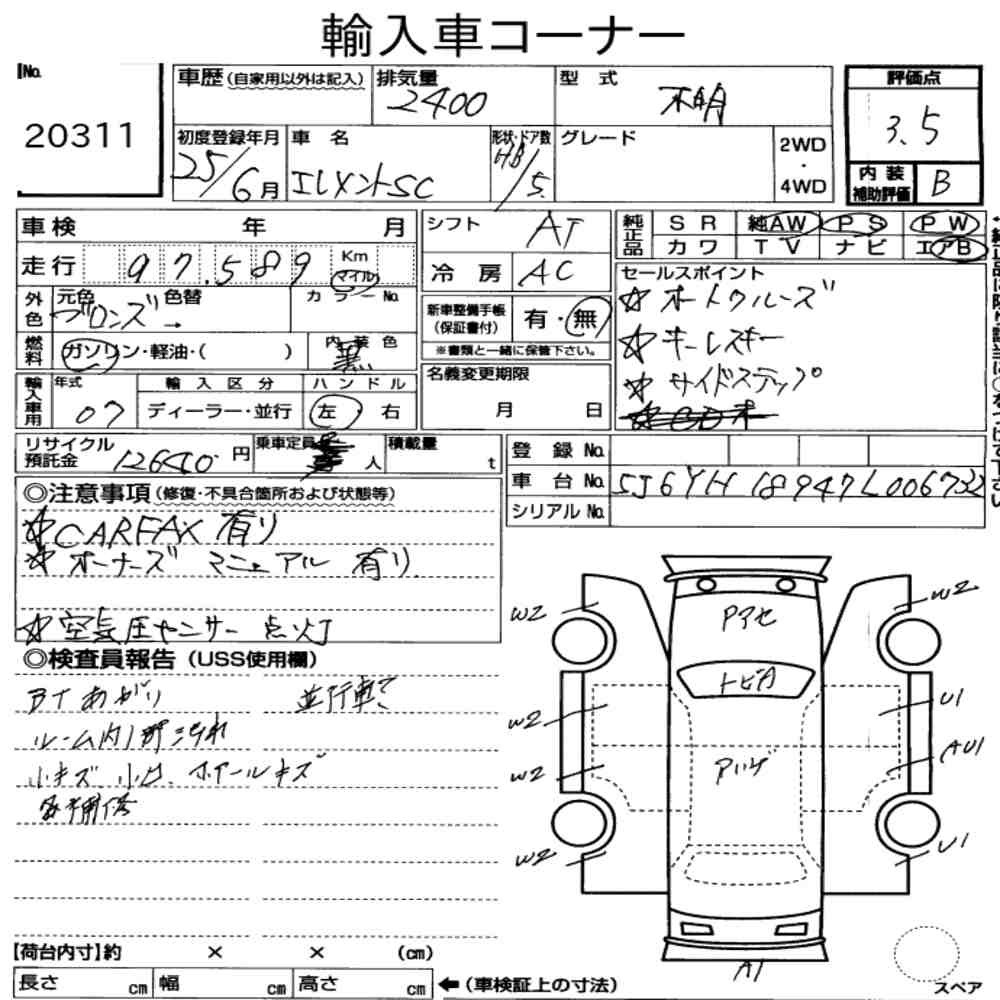 輸入車コーナー
No.
20311
車歴 (自家用以外は記入)
排気量
2400
型式
不明
評価点
3.5
初度登録年月
25/6月
車名
エレメントSC
形状・ドア数
HB/5
グレード
2WD
・
4WD
内装
補助評価
B
車検 年 月
走行 97,589 Km マイル
外色
元色 色替
ブロンズ→
カラーNo.
燃料
ガソリン・軽油・( )
内装色
黒
輸入車用
年式
07
輸入区分
ディーラー・並行
ハンドル
左・右
リサイクル
預託金
12640円
乗車定員
人
積載量
t
シフト AT
冷房 AC
新車整備手帳
(保証書付)
有・無
※書類と一緒に保管下さい。
名義変更期限
月 日
純正品
SR 純AW PS PW
カワ TV ナビ エアB
セールスポイント
☆オートクルーズ
☆キーレスキー
☆サイドステップ
登録No.
車台No. 5J6YH18947L006732
シリアルNo.
◎注意事項 (修復・不具合箇所および状態等)
☆CARFAX 有り
☆オーナーズ マニュアル 有り
☆空気圧センサー 点灯
◎検査員報告 (USS使用欄)
並行車
ルーム内
小キズ 小凹、ホイールキズ
W2
W2
W2
W2
W2
U1
AU1
U1
A1
【荷台内寸】約 × × (cm)
長さ cm 幅 cm 高さ cm
←(車検証上の寸法)
スペア